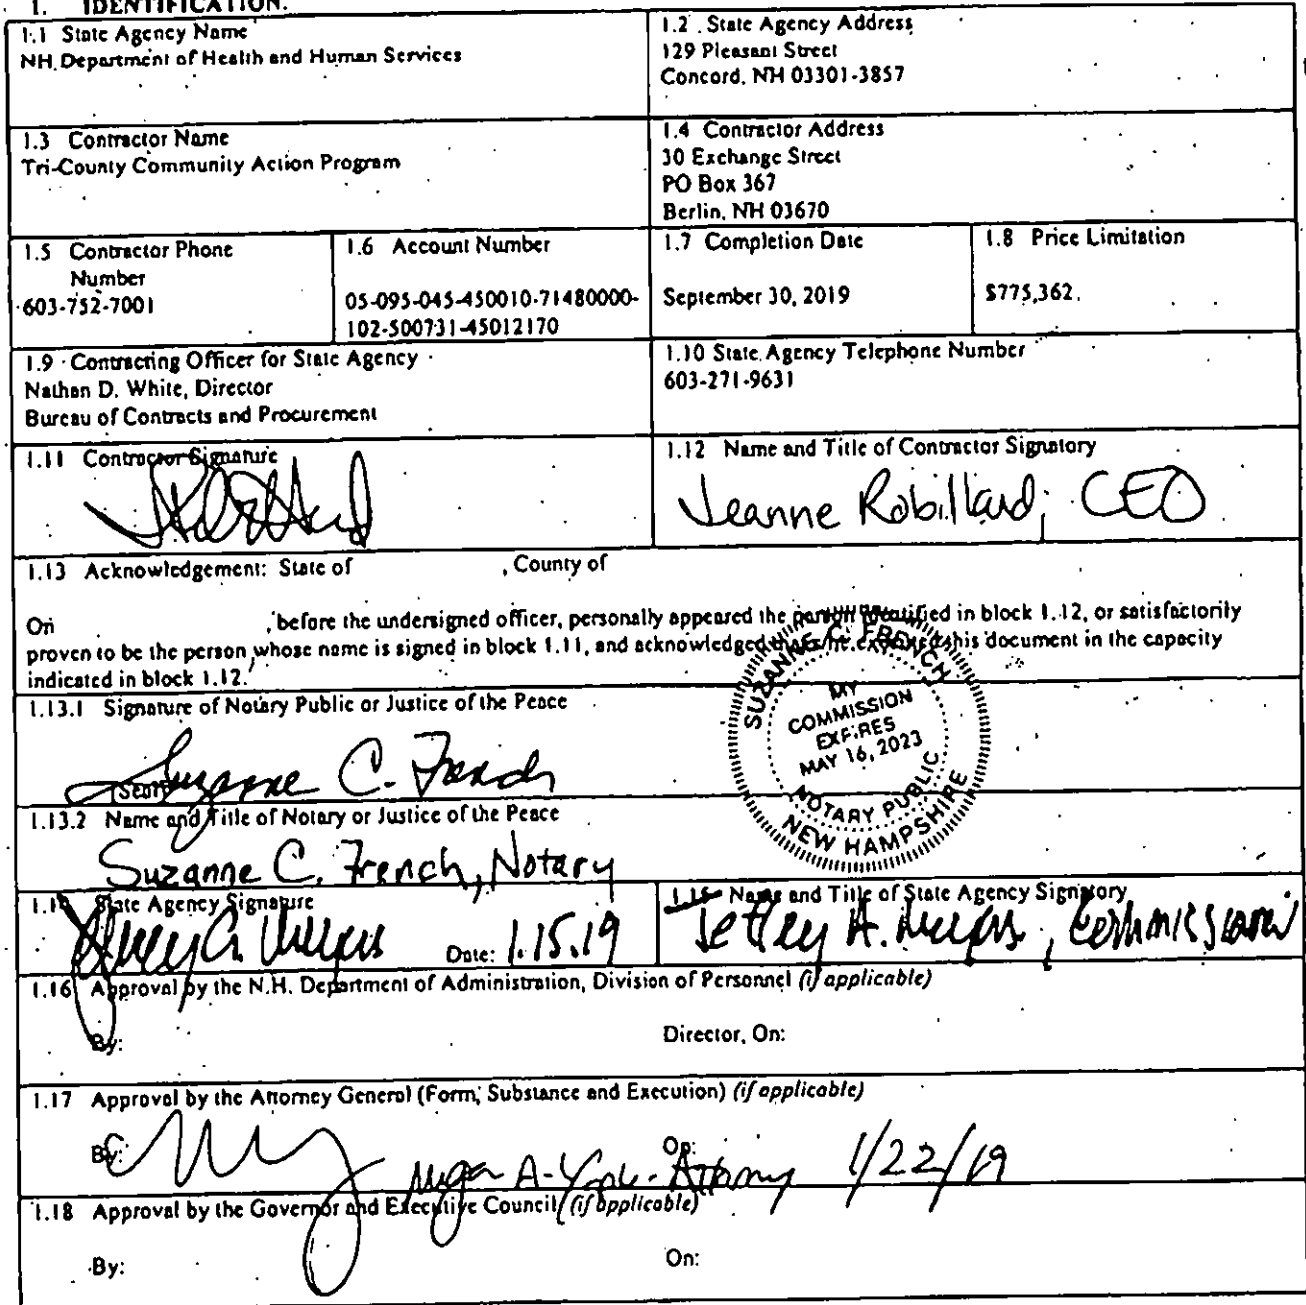 1. IDENTIFICATION.
1.1 State Agency Name
NH Department of Health and Human Services
1.2 State Agency Address
129 Pleasant Street
Concord, NH 03301-3857
1.3 Contractor Name
Tri-County Community Action Program
1.4 Contractor Address
30 Exchange Street
PO Box 367
Berlin, NH 03670
1.5 Contractor Phone
Number
603-752-7001
1.6 Account Number
05-095-045-450010-71480000-
102-500731-45012170
1.7 Completion Date
September 30, 2019
1.8 Price Limitation
$775,362.
1.9 Contracting Officer for State Agency
Nathan D. White, Director
Bureau of Contracts and Procurement
1.10 State Agency Telephone Number
603-271-9631
1.11 Contractor Signature
1.12 Name and Title of Contractor Signatory
Jeanne Robillard, CEO
1.13 Acknowledgement: State of , County of
On , before the undersigned officer, personally appeared the person identified in block 1.12, or satisfactorily
proven to be the person whose name is signed in block 1.11, and acknowledged this document in the capacity
indicated in block 1.12.
SUZANNE C. FRENCH
MY
COMMISSION
EXPIRES
MAY 16, 2023
NOTARY PUBLIC
NEW HAMPSHIRE
1.13.1 Signature of Notary Public or Justice of the Peace
Suzanne C. French
[Seal]
1.13.2 Name and Title of Notary or Justice of the Peace
Suzanne C. French, Notary
1.14 State Agency Signature
Date: 1.15.19
1.15 Name and Title of State Agency Signatory
Jeffrey A. Meyers, Commissioner
1.16 Approval by the N.H. Department of Administration, Division of Personnel (if applicable)
By: Director, On:
1.17 Approval by the Attorney General (Form, Substance and Execution) (if applicable)
By: On:
Attorney 1/22/19
1.18 Approval by the Governor and Executive Council (if applicable)
By: On: